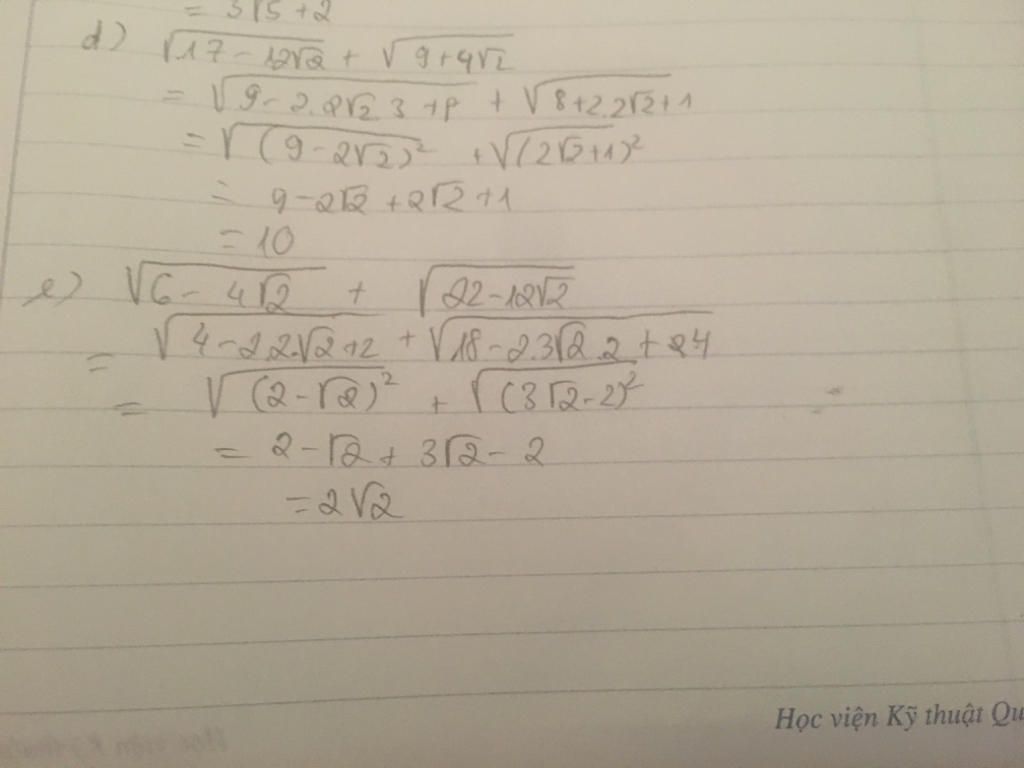 = 3√5 + 2
d) √17 - 12√2 + √9 + 4√2
= √9 - 2.2√2.3 + 8 + √8 + 2.2√2 + 1
= √(9 - 2√2)² + √(2√2 + 1)²
= 9 - 2√2 + 2√2 + 1
= 10
e) √6 - 4√2 + √22 - 12√2
= √4 - 2.2.√2 + 2 + √18 - 2.3√2.2 + 4
= √(2 - √2)² + √(3√2 - 2)²
= 2 - √2 + 3√2 - 2
= 2√2
Học viện Kỹ thuật Qu